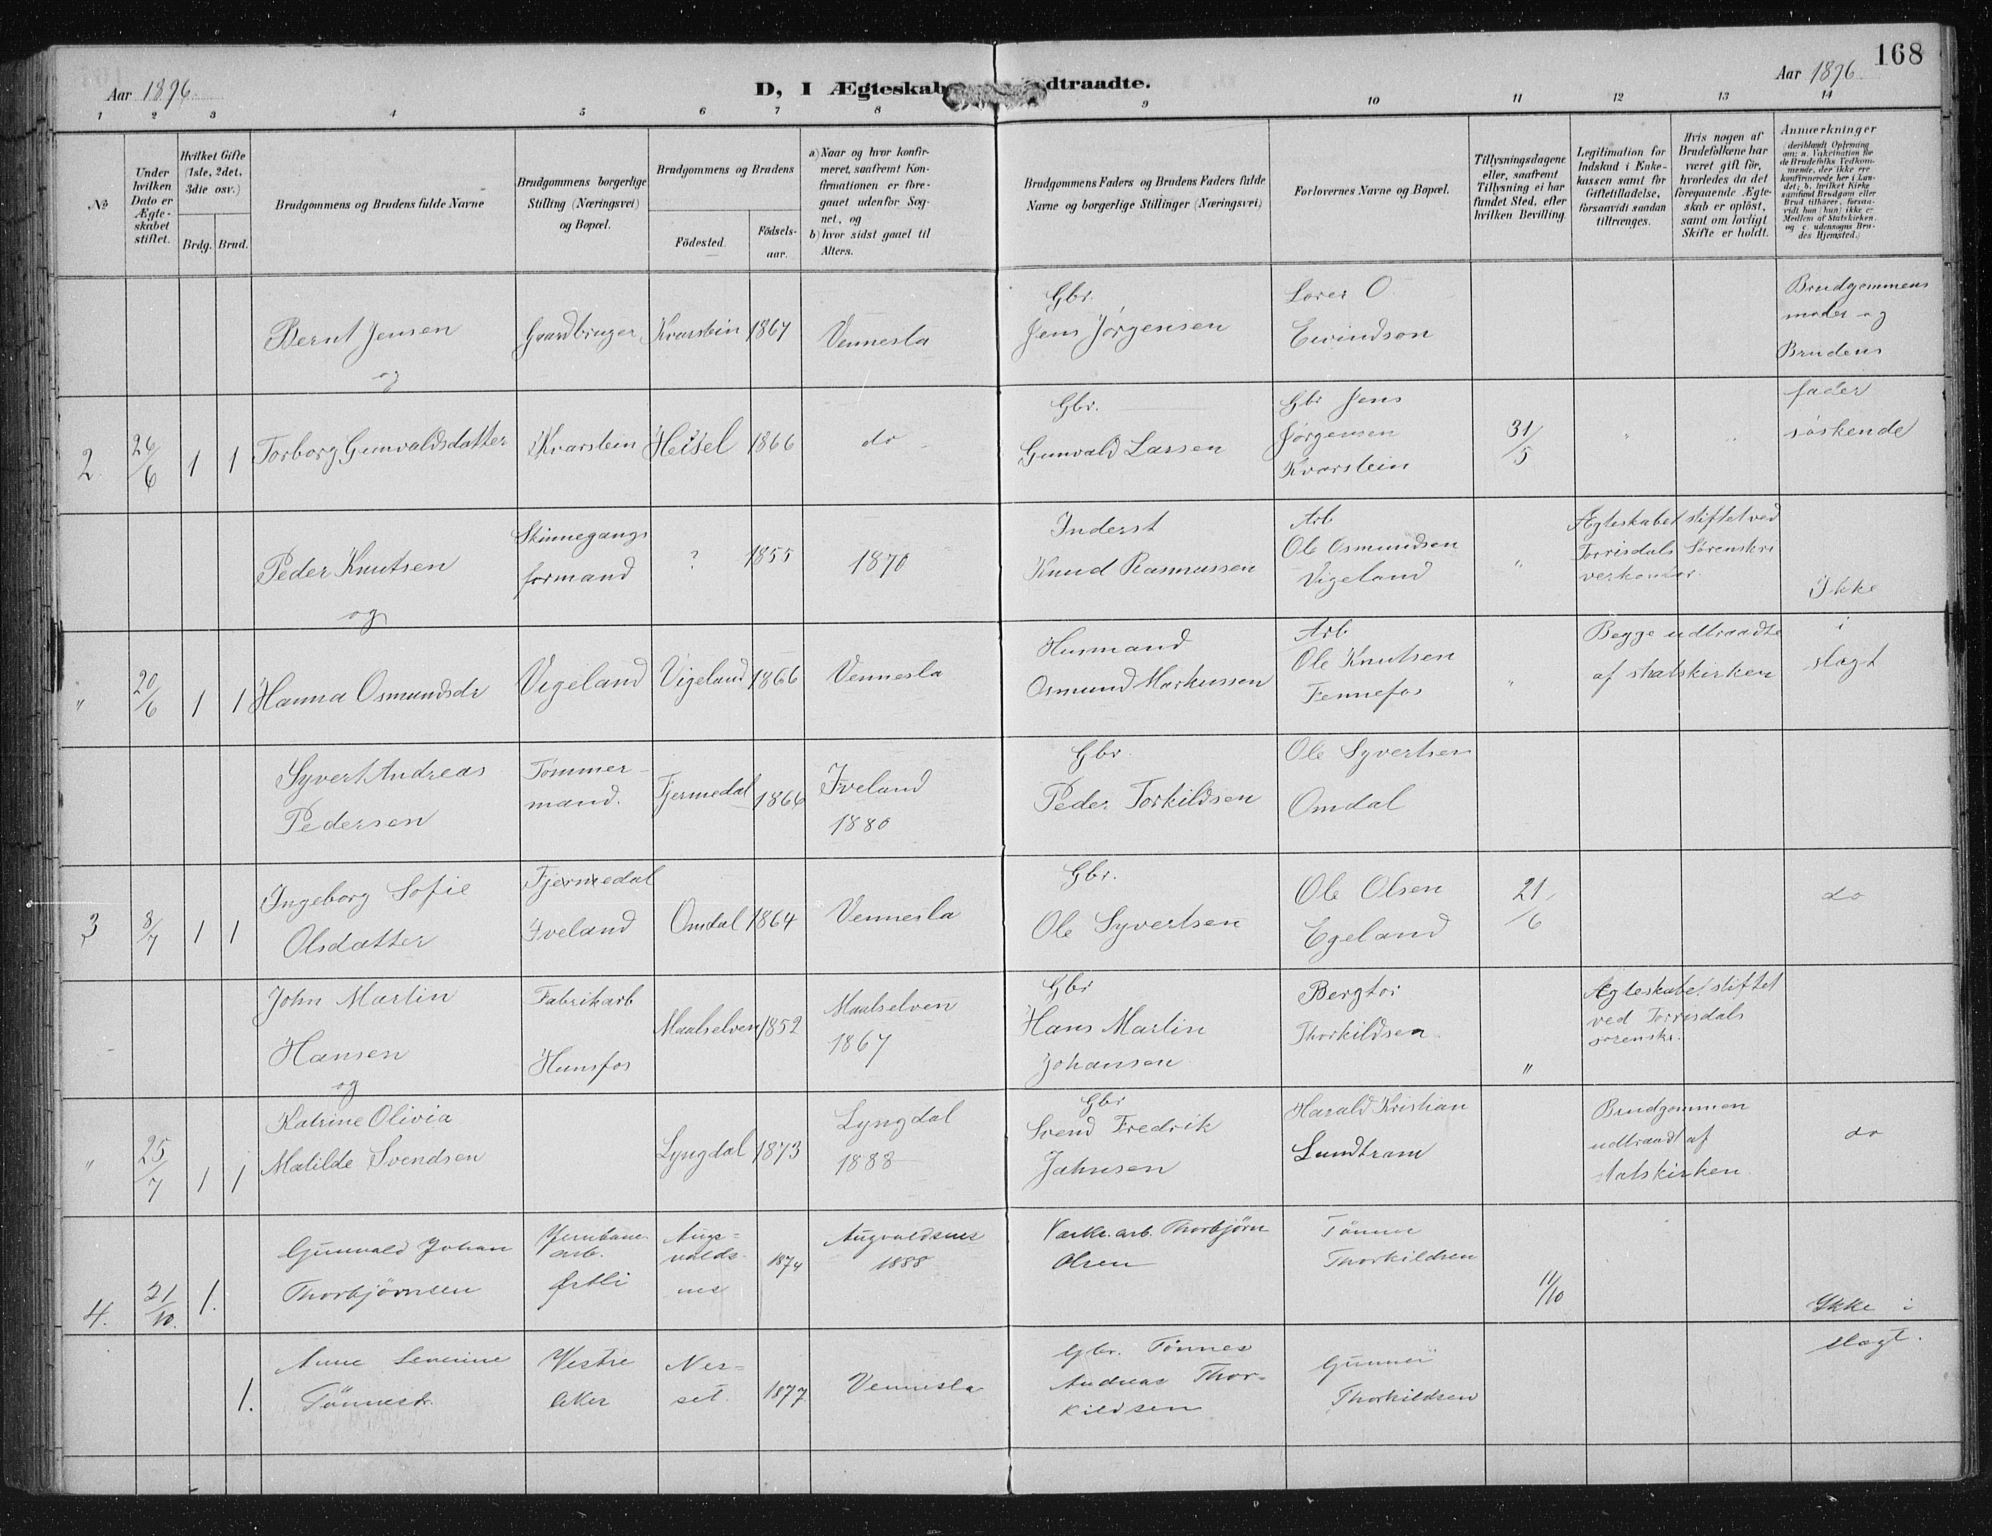 168
Aar 1896.
D, I Ægteskab
dtraadte.
Aar 1896.
1 2 3 4 5 6 7 8 9 10 11 12 13 14
No
Under hvilken Dato er Ægteskabet stiftet.
Hvilket Gifte (1ste, 2det, 3die osv.)
Brdg. Brud.
Brudgommens og Brudens fulde Navne
Brudgommens borgerlige Stilling (Næringsvei) og Bopæl.
Brudgommens og Brudens
Fødested.
Fødselsaar.
a) Naar og hvor konfirmeret, saafremt Konfirmationen er foregaaet udenfor Sognet, og
b) hvor sidst gaael til Alters.
Brudgommens Faders og Brudens Faders fulde Navne og borgerlige Stillinger (Næringsvei)
Forlovernes Navne og Bopæl.
Tillysningsdagene eller, saafremt Tillysning ei har fundet Sted, efter hvilken Bevilling.
Legitimation for Indskud i Enkekassen samt for Giftetilladelse, forsaavidt saadan tiltrænges.
Hvis nogen af Brudefolkene har været gift før, hvorledes da det foregaaende Ægteskab er opløst, samt om lovligt Skifte er holdt.
Anmerkninger
Bernt Jensen
og
Gaardbruger
Kvarstein
1867
Vennesla
Gbr.
Jens Jørgensen
Lorer O.
Eivindson
Brudgommens
moder og
Brudens
2
26/6
1
1
Torborg Gunvaldsdatter
Kvarstein
Heisel
1866
do
Gbr.
Gunvald Larsen
Gbr Jens
Jørgensen
Kvarstein
31/5
"
"
fader
søskende
Peder Knutsen
og
Skinnegangs
formand
?
1855
1870
Inderst
Knud Rasmussen
Arb
Ole Osmundsen
Vigeland
"
Ægteskabet stiftet ved
Torrisdals Sørenskri
verkontor.
Ikke
"
20/6
1
1
Hanna Osmundsdr
Vigeland
Vigeland
1866
Vennesla
Husmand
Osmund Markussen
Arb
Ole Knutsen
Fennefos
"
Begge udtraadte
af statskirken
i
slægt
Syvert Andreas
Pedersen
Tømmer-
mand.
Fjermedal
1866
Iveland
1880
Gbr.
Peder Torkildsen
Ole Syvertsen
Omdal
3
8/7
1
1
Ingeborg Sofie
Olsdatter
Fjermedal
Iveland
Omdal
1864
Vennesla
Gbr.
Ole Syvertsen
Ole Olsen
Egeland
21/6
do
John Martin
Hansen
og
Fabrikarb
Hunsfos
Maalselven
1852
Maalselven
1867
Gbr
Hans Martin
Johansen
Bergtor
Thorkildsen
"
Ægteskabet stiftet
ved Torrisdals
sorenskr.
"
25/7
1
1
Katrine Olivia
Matilde Svendsen
Lyngdal
1873
Lyngdal
1888
Gbr
Svend Fredrik
Jahnsen
Harald Kristian
Lundtram
Brudgommen
udtraadt af
statskirken
do
4.
21/10.
1.
Gunvald Johan
Thorbjørnsen
Jernbane
arb.
Østli
Augs=
valds-
nes
1874
Augvaldsnes
1888
Værks.arb. Thorbjørn
Olsen
Tønnes
Thorkildsen
11/10
Ykke i
1.
Anne Severine
Tønnesdr.
Vestre
Aker
Nes-
set.
1877
Vennesla
Gbr. Tønnes
Andreas Thor-
kildsen
Gunner
Thorkildsen
slægt.